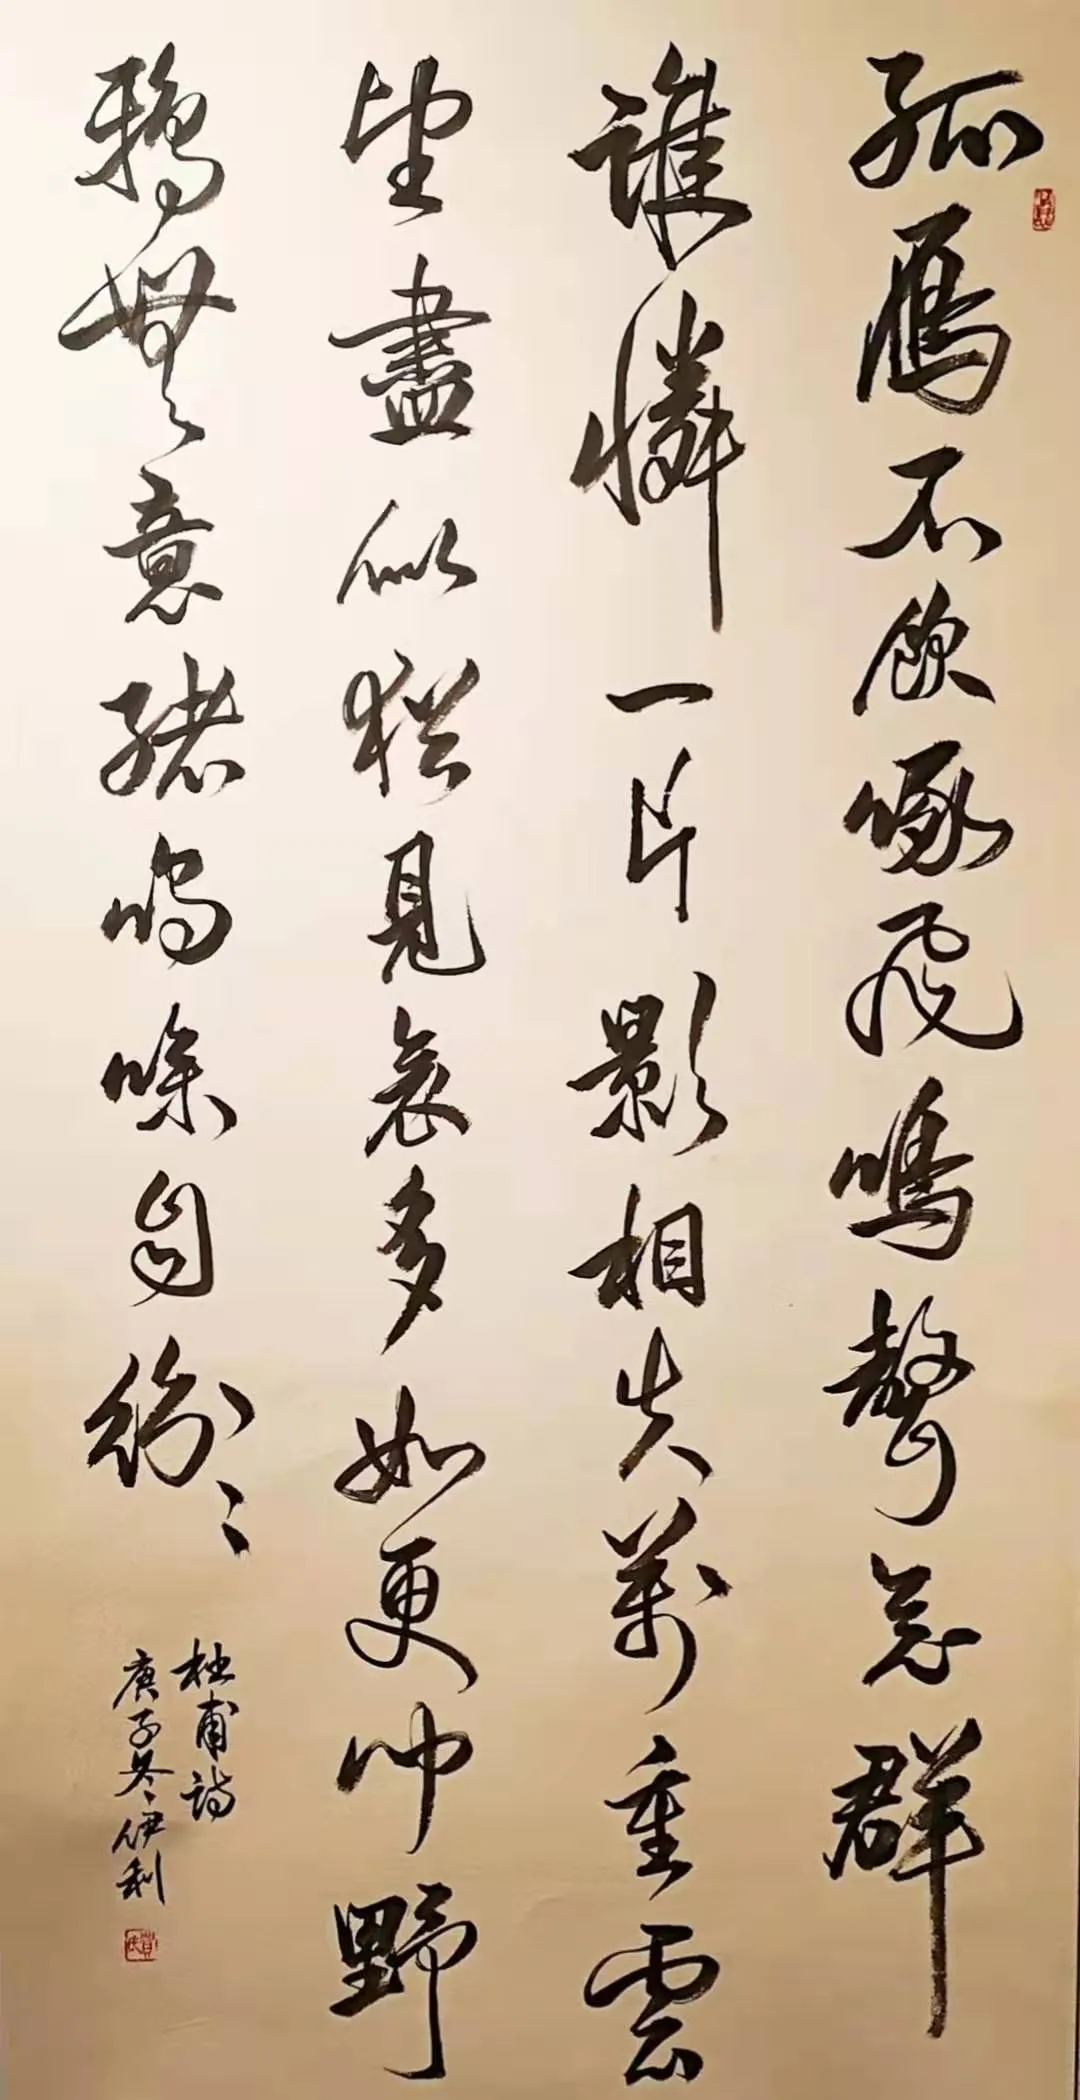 孤鴈不飲啄飛鳴聲念群
誰憐一片影相失萬重雲
望盡似猶見哀多如更聞野
鴉無意緒鳴噪自紛〻
杜甫詩
庚子冬伊利